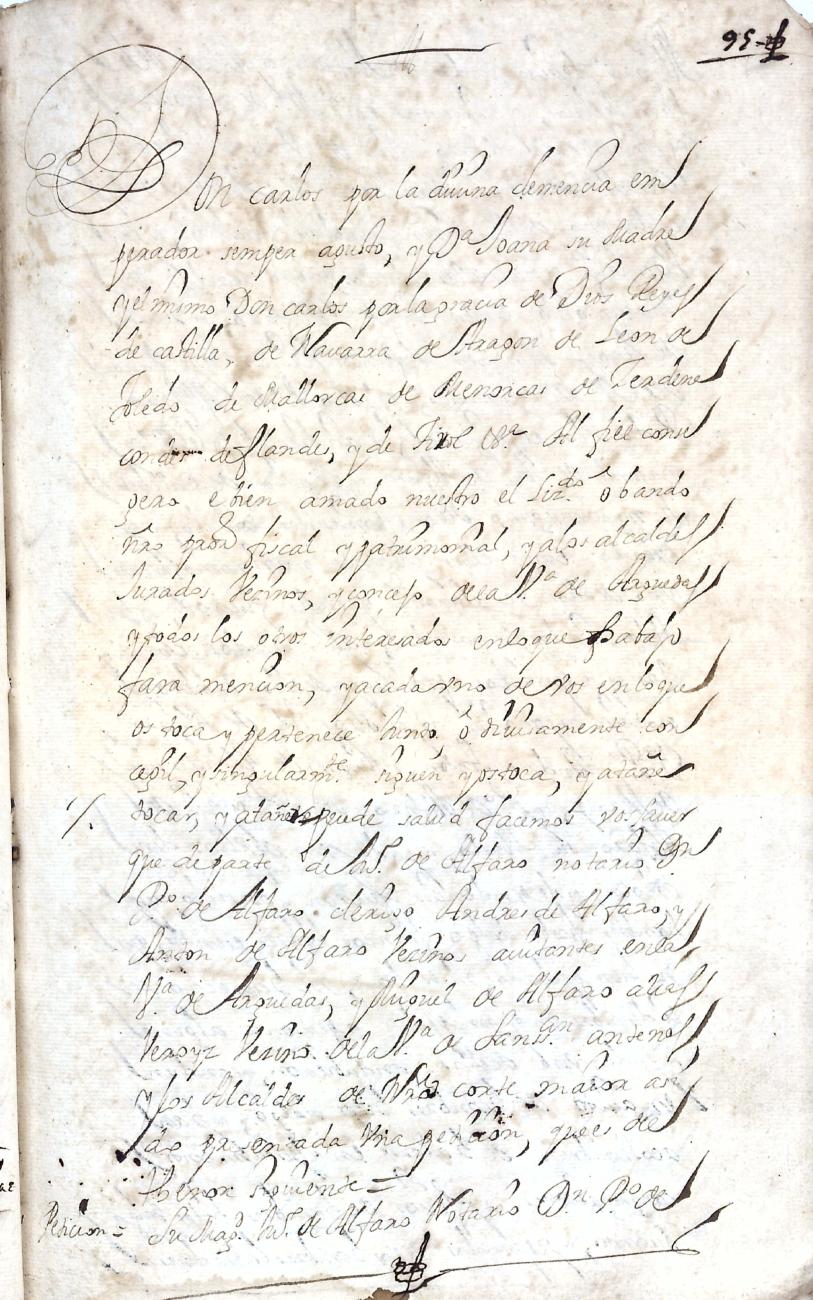 95
Don carlos por la diuina clemencia em
perador semper agusto, y Dª Joana su Madre
y el mismo Don carlos por la gracia de Dios Reyes
de castilla, de Nauarra de Aragon de Leon de
Toledo de Mallorcas de Menorcas de Cerdeñe
condes de flandes, y de Tirol &ª Al fiel conse
gero e bien amado nuestro el Lizdo obando
nro fiscal y patrimonial, y a los alcaldes
Jurados Vezinos, y concejo de la Vª de Arguedas
y todos los otros interesados en lo que abajo
fara mencion, y a cada vno de vos en lo que
os toca y pertenece Junto ô diuisamente con
y singularmte siguen y os toca, y atañe
tocar, y atañer puede salud facemos vos sauer
que de parte de de Alfaro notario Dn
Po. de Alfaro clerigo Andres de Alfaro, y
Anton de Alfaro Vezinos auitantes en la
Vª. de Arguedas, y Miguel de Alfaro alias
Verozpe Vezino de la Vª de ante nos
y los Alcaldes de Nra corte maior a si
do presentada vna peticion, que es de
thenor siguiente =
Peticion = Su Magd. de Alfaro Notario Dn Po de